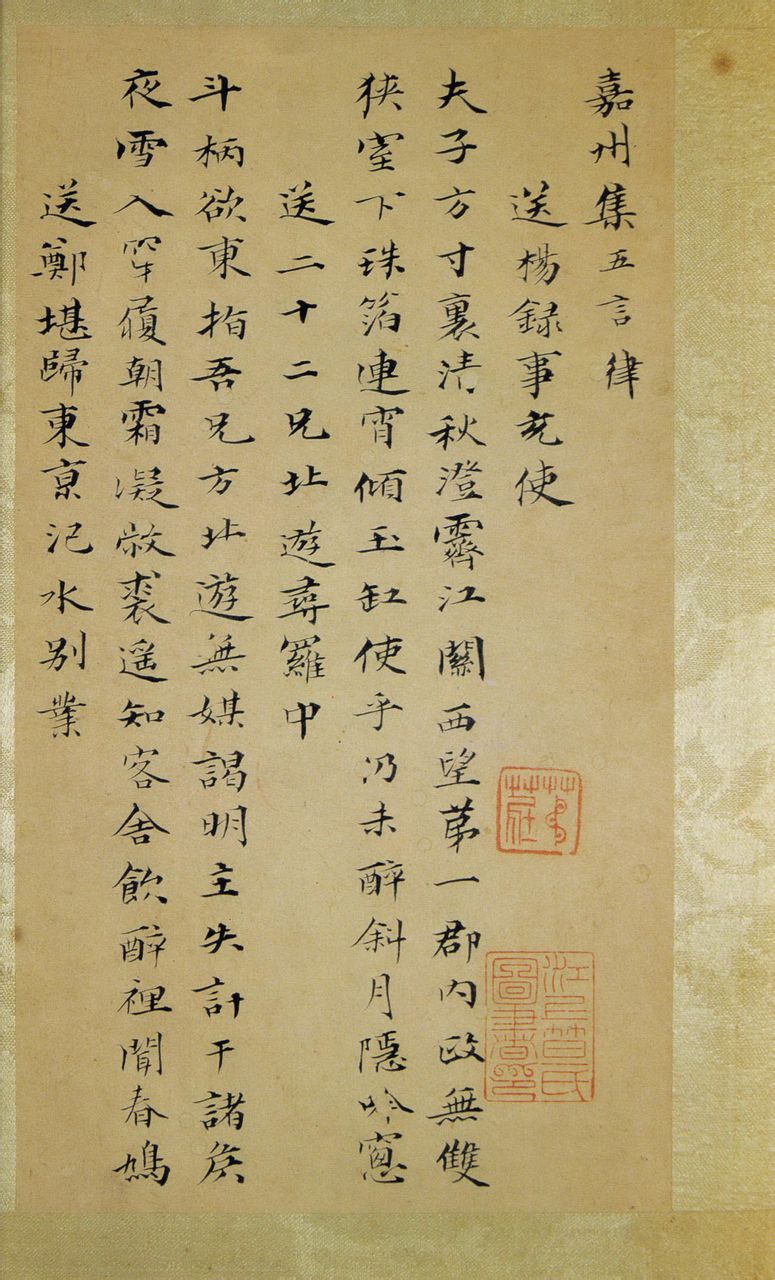 嘉州集五言律
送楊録事充使
夫子方寸裏清秋澄霽江關西望苐一郡内政無雙
狹室下珠箔連宵傾玉缸使乎仍未醉斜月隱吟窻
送二十二兄北遊尋羅中
斗柄欲東指吾兄方北遊無媒謁明主失計干諸侯
夜雪入穿履朝霜凝敝裘遥知客舍飲醉裡聞春鳩
送鄭堪歸東京汜水别業
江上笪氏
圖書印